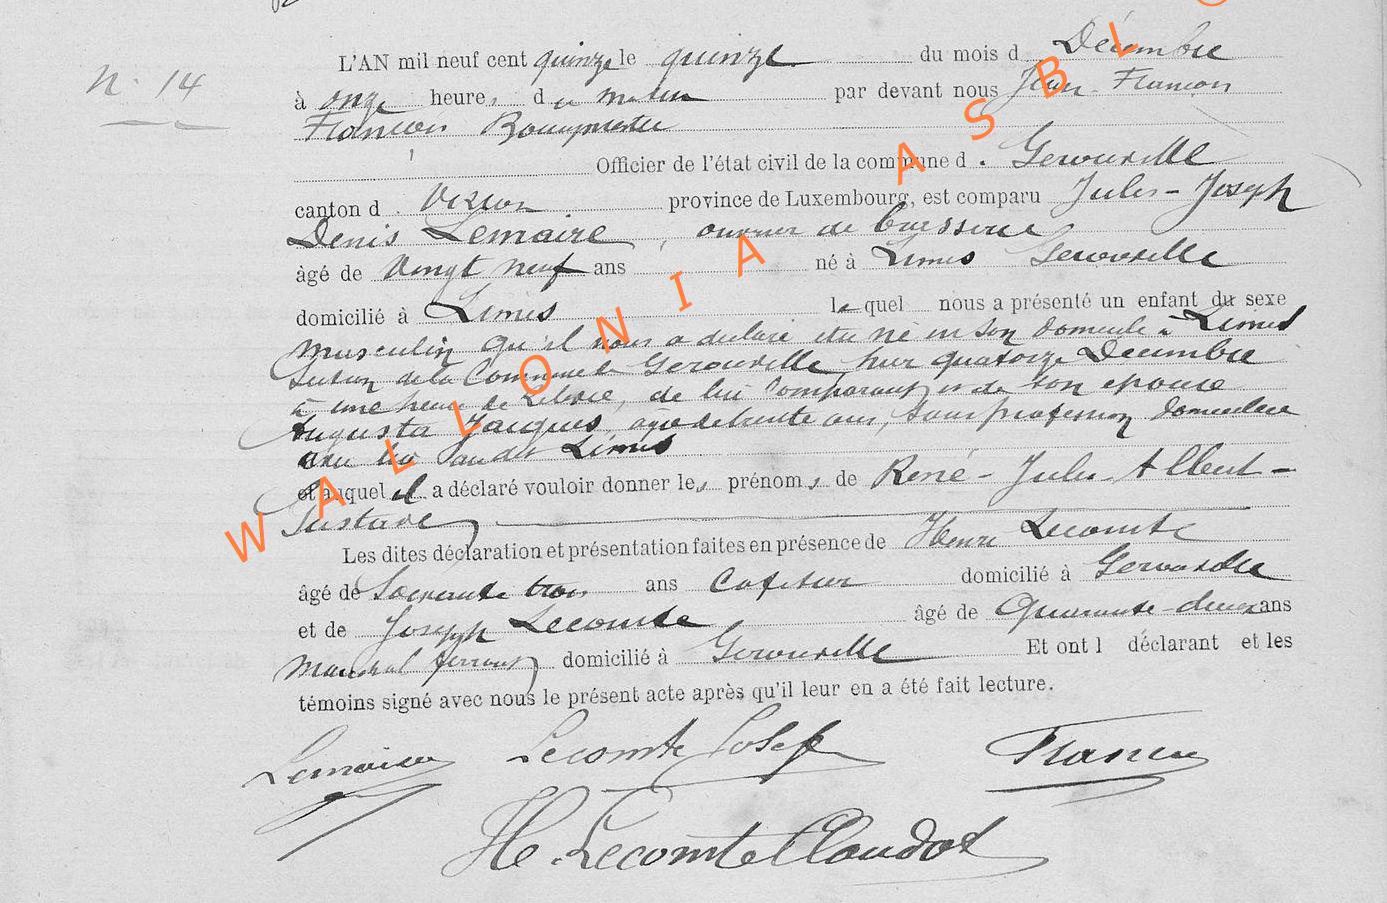 L'AN mil neuf cent quinze le quinze du mois d Décembre
N. 14
à onze heures du matin par devant nous Jean-François
François Bourgmestre
Officier de l'état civil de la commune d. Gerouville
canton d. Virton province de Luxembourg, est comparu Jules-Joseph
Denis Lemaire, ouvrier de
âgé de Vingt neuf ans né à Limes Gerouville
domicilié à Limes lequel nous a présenté un enfant du sexe
masculin qu'il nous a déclaré être né en son domicile à Limes
Section de la Commune de Gerouville hier quatorze Décembre
à une heure de relevée, de lui comparant et de son épouse
Augusta Jacques, âgée de trente ans, sans profession domiciliée
avec lui au dit Limes
et auquel il a déclaré vouloir donner les prénoms de René-Jules-Albert-
Gustave
Les dites déclaration et présentation faites en présence de Henri Lecomte
âgé de Soixante trois ans Cafetier domicilié à Gerouville
et de Joseph Lecomte âgé de Quarante-deux ans
Maréchal ferrant domicilié à Gerouville Et ont l déclarant et les
témoins signé avec nous le présent acte après qu'il leur en a été fait lecture.
Lemaire Lecomte Josef François
H. Lecomte Claudot
WALLONIA ASBL